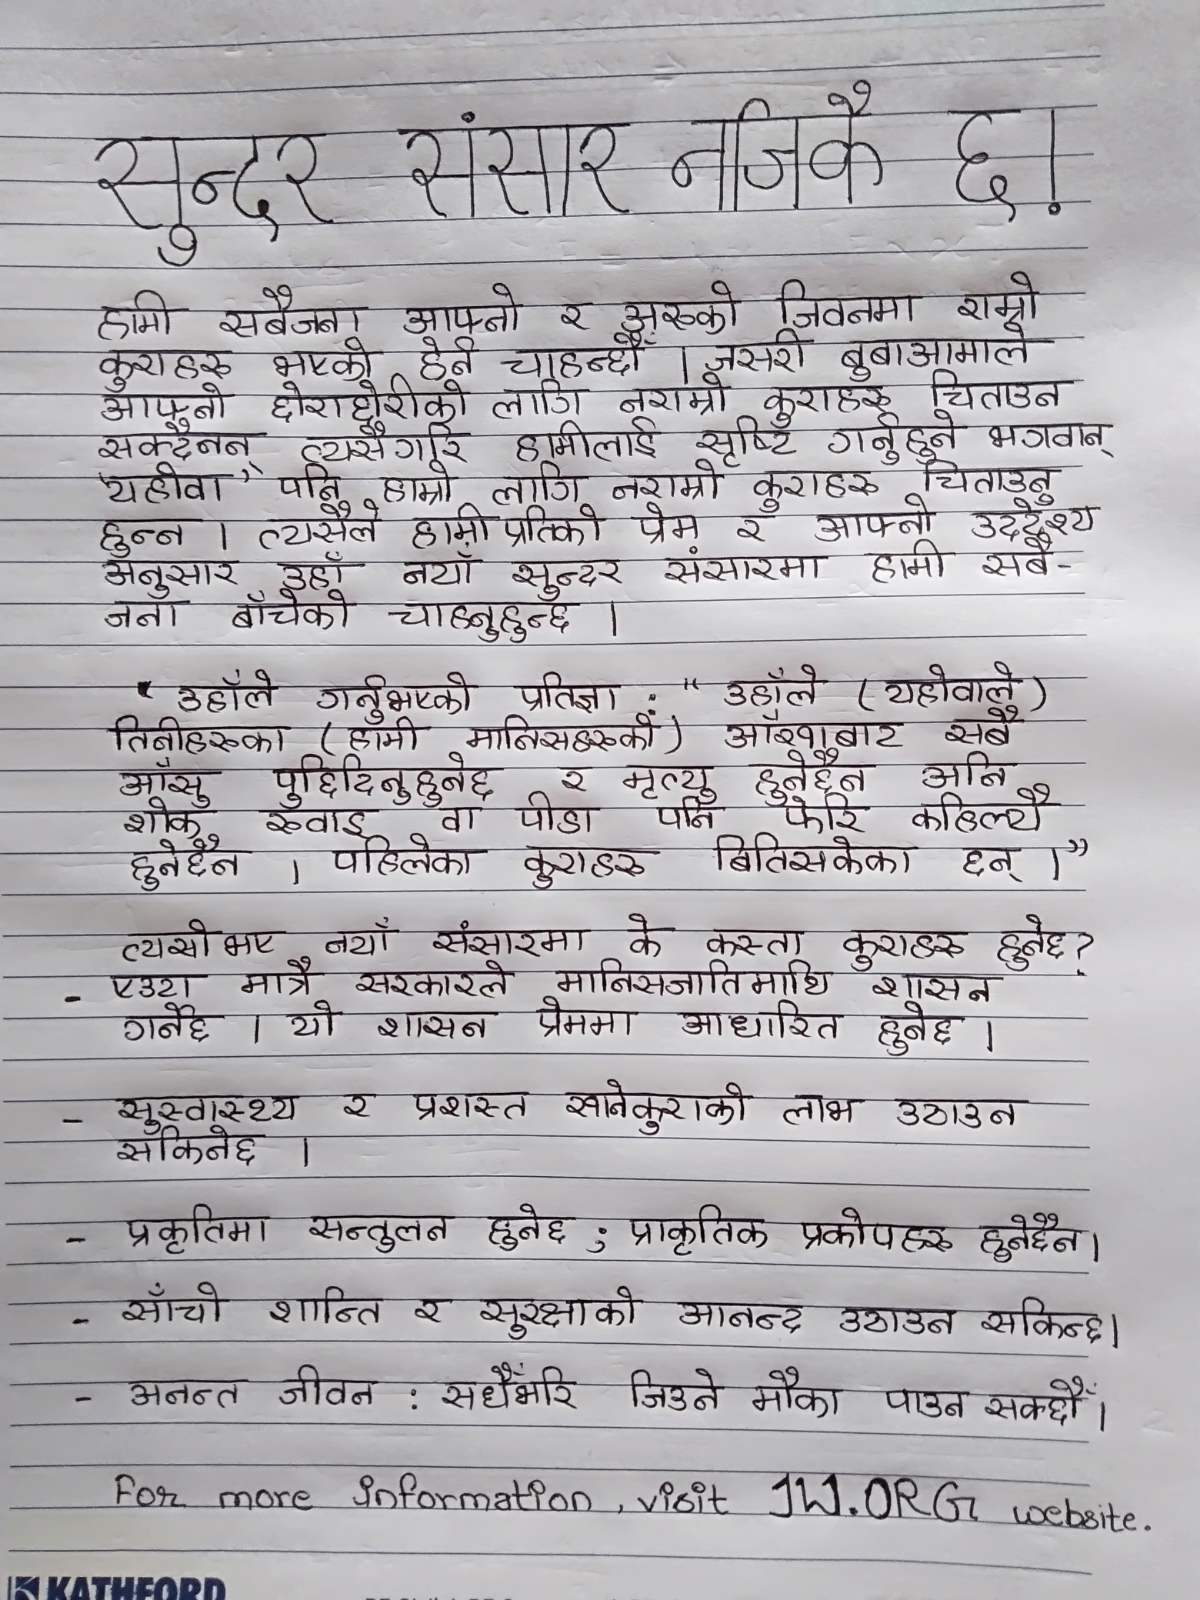 सुन्दर संसार नजिकै छ!
हामी सबैजना आफ्नो र अरुको जिवनमा राम्रो
कुराहरु भएको हेर्न चाहन्छौँ । जसरी बुबाआमाले
आफ्नो छोराछोरीको लागि नराम्रो कुराहरु चिताउन
सक्दैनन् त्यसैगरि हामीलाई सृष्टि गर्नुहुने भगवान्
"यहोवा" पनि हाम्रो लागि नराम्रो कुराहरु चिताउनु
हुन्न । त्यसैले हामीप्रतिको प्रेम र आफ्नो उद्देश्य
अनुसार उहाँ नयाँ सुन्दर संसारमा हामी सबै-
जना बाँचेको चाहनुहुन्छ ।
उहाँले गर्नुभएको प्रतिज्ञा : " उहाँले (यहोवाले)
तिनीहरुका (हामी मानिसहरुको) आँखाबाट सबै
आँसु पुछिदिनुहुनेछ र मृत्यु हुनेछैन अनि
शोक, रुवाइ वा पीडा पनि फेरि कहिल्यै
हुनेछैन । पहिलेका कुराहरु बितिसकेका छन् ।"
त्यसोभए नयाँ संसारमा के कस्ता कुराहरु हुनेछ?
- एउटा मात्रै सरकारले मानिसजातिमाथि शासन
गर्नेछ । यो शासन प्रेममा आधारित हुनेछ ।
- सुस्वास्थ्य र प्रशस्त खानेकुराको लाभ उठाउन
सकिनेछ ।
- प्रकृतिमा सन्तुलन हुनेछ ; प्राकृतिक प्रकोपहरु हुनेछैन।
- साँचो शान्ति र सुरक्षाको आनन्द उठाउन सकिन्छ।
- अनन्त जीवन : सधैँभरि जिउने मौका पाउन सक्छौँ।
For more information, visit JW.ORG website.
KATHFORD